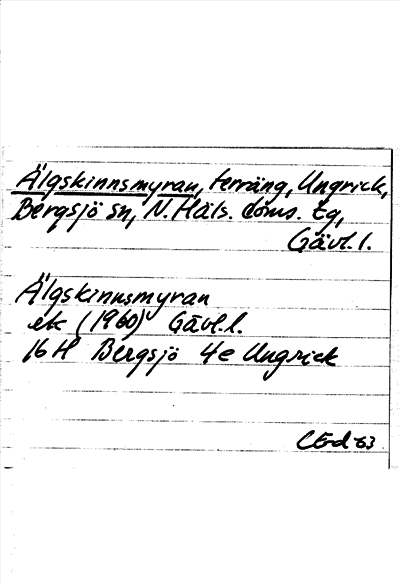 Älgskinnsmyran, terräng, Ungrick,
Bergsjö sn, N. Häls. doms. tg,
Gävl. l.
Älgskinnsmyran
ek (1960) Gävl. l.
16 H Bergsjö 4e Ungrick
CErd 63